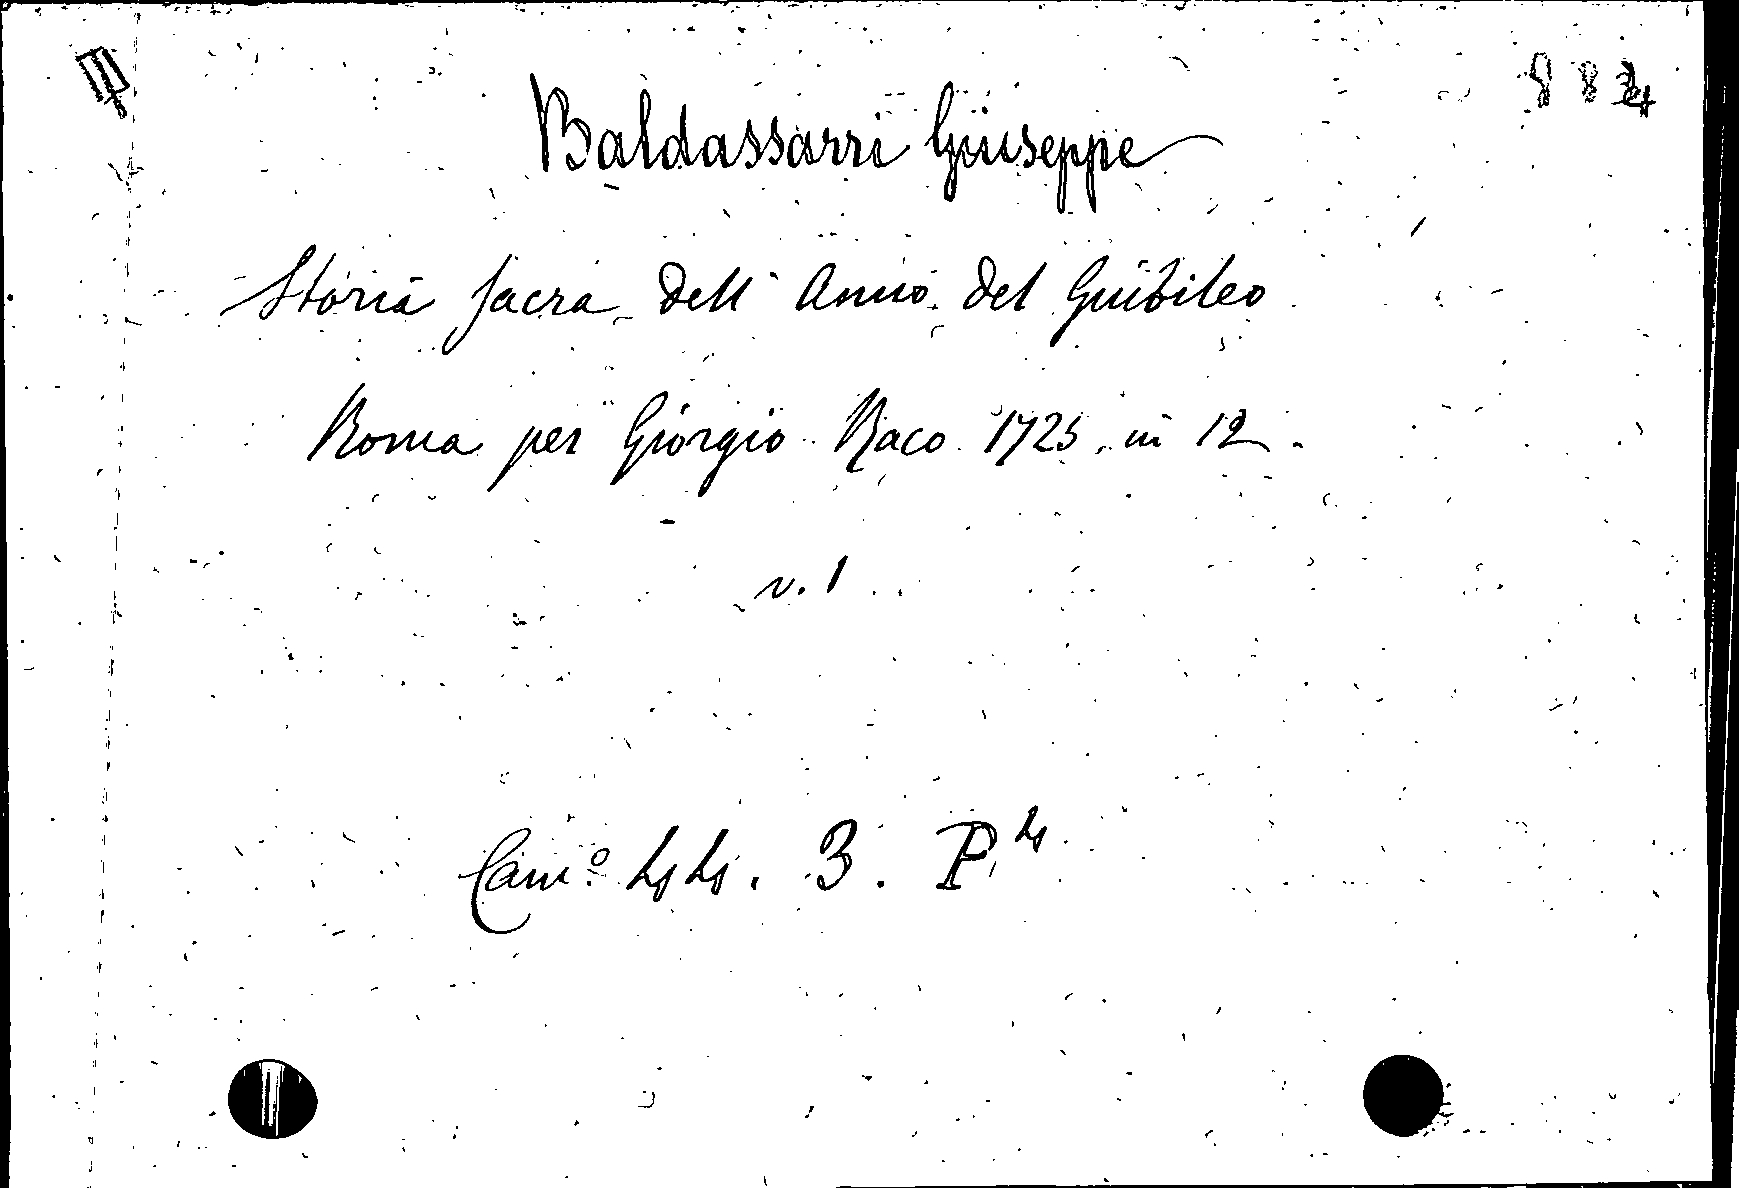 884
Baldassarri Giuseppe
Storia sacra dell'Anno del Giubileo
Roma per Giorgio Raco 1725 in 12.
v. 1
Cam.º 44. 3. P. 4